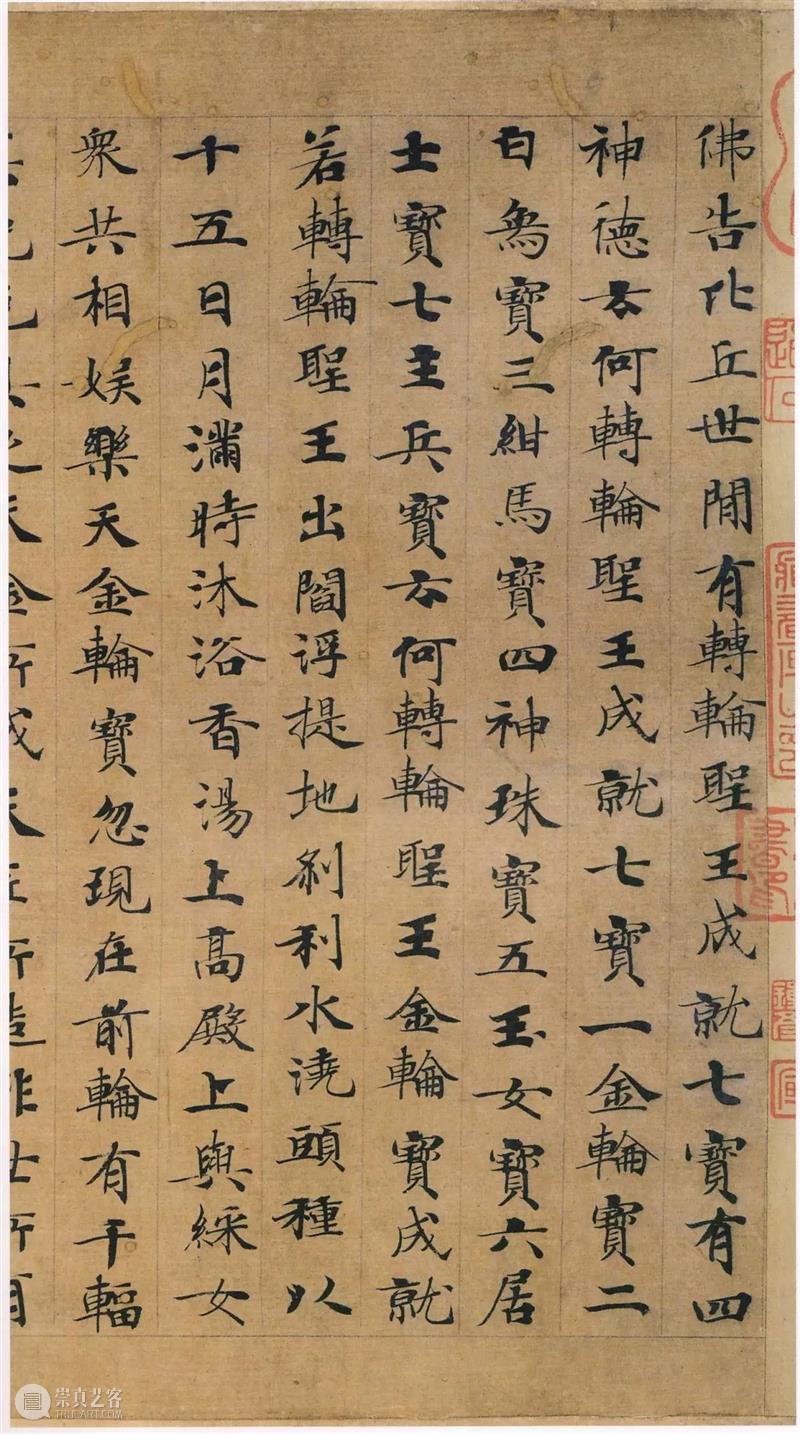 佛告比丘世閒有轉輪聖王成就七寶有四
神德云何轉輪聖王成就七寶一金輪寶二
白象寶三紺馬寶四神珠寶五玉女寶六居
士寶七主兵寶云何轉輪聖王金輪寶成就
若轉輪聖王出閻浮提地刹利水澆頭種以
十五日月滿時沐浴香湯上高殿上與綵女
衆共相娛樂天金輪寶忽現在前輪有千輻
光色具足天金所成天匠所造非世所有
崇真艺客
TRUEART.COM